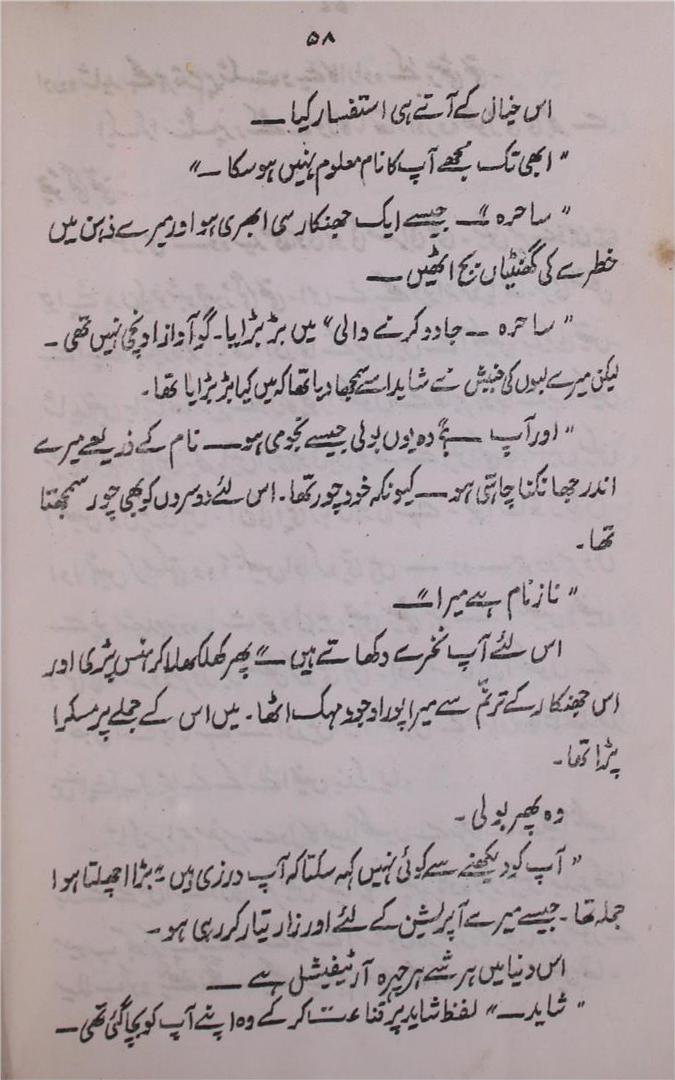 ۵۸
اس خیال کے آتے ہی استفسار کیا ــــ
"ابھی تک مجھے آپ کا نام معلوم نہیں ہو سکا ۔"
"ساحرہ" ــــ جیسے ایک جھنکار سی ابھری ہو اور میرے ذہن میں
خطرے کی گھنٹیاں بج اٹھیں ــــ
"ساحرہ ــــ جادو کرنے والی" میں بڑبڑایا۔ گو آواز اونچی نہیں تھی ۔
لیکن میرے لبوں کی جنبش نے شاید اسے سمجھا دیا تھا کہ میں کیا بڑبڑایا تھا۔
"اور آپ ــــ؟" وہ یوں بولی جیسے نجومی ہو ــــ نام کے ذریعے میرے
اندر جھانکنا چاہتی ہو ــــ کیونکہ خود چور تھا۔ اس لئے دوسروں کو بھی چور سمجھتا
تھا۔
"ناز نام ہے میرا" ــــ
اس لئے آپ نخرے دکھاتے ہیں ــــ" پھر کھلکھلا کر ہنس پڑی اور
اس جھنکار کے ترنّم سے میرا پورا وجود مہک اٹھا۔ میں اس کے جملے پر مسکرا
پڑا تھا۔
وہ پھر بولی ۔
"آپ کو دیکھنے سے کوئی نہیں کہہ سکتا کہ آپ درزی ہیں" یہ بڑا اچھلتا ہوا
جملہ تھا۔ جیسے میرے آپریشن کے لئے اوزار تیار کر رہی ہو ۔
اس دنیا میں ہر شے ہر چہرہ آرٹیفیشل ہے ــــ
"شاید ــــ" لفظ شاید پر قناعت کر کے وہ اپنے آپ کو بچا گئی تھی ــــ